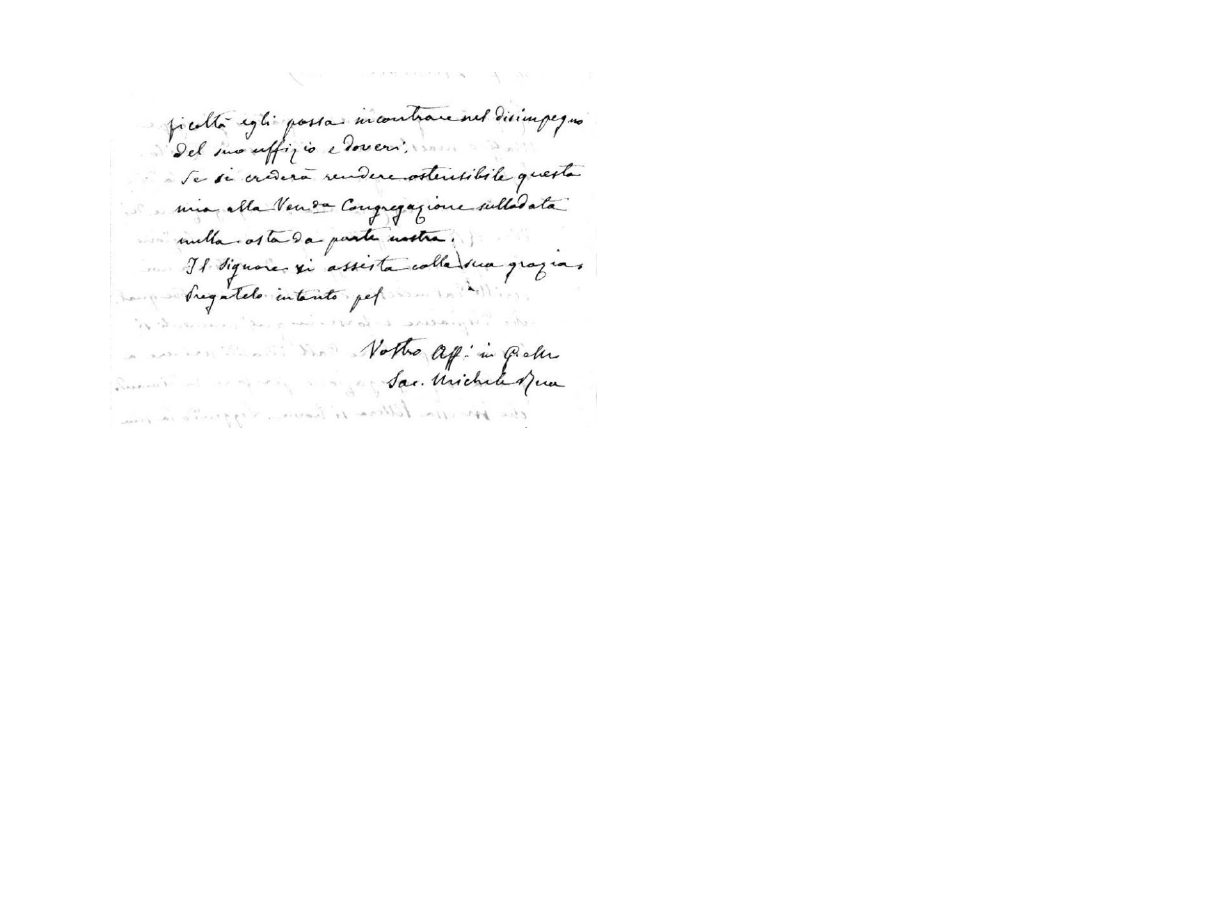 ficoltà egli possa incontrare nel disimpegno
del suo uffizio e doveri.
Se si crederà rendere ostensibile questa
mia alla Ven.da Congregazione sullodata
nulla osta da parte nostra.
Il Signore vi assista colla sua grazia,
Pregatelo intanto pel
Vostro Aff. in G.
Sac. Michele Rua